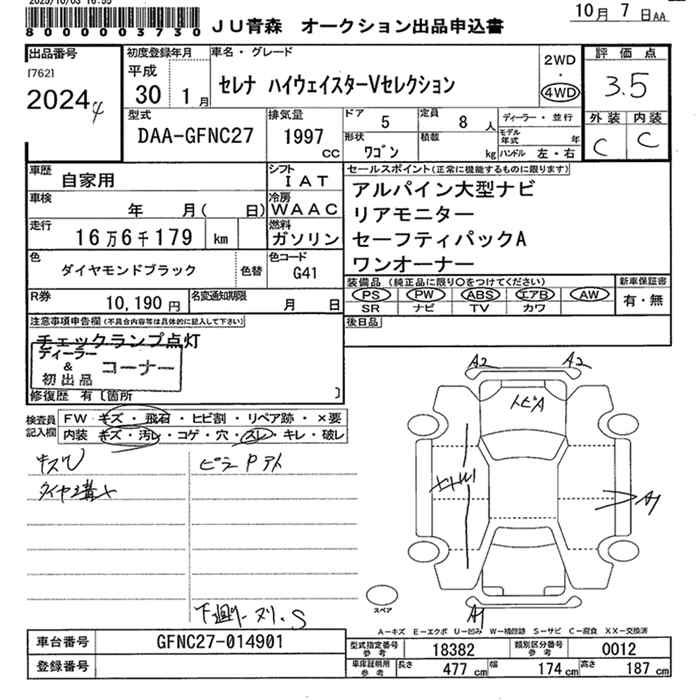 2025/10/03 16:55
8000003730
JU青森 オークション出品申込書
10月 7日AA
出品番号
[762]
2024
初度登録年月
平成
30 1月
車名・グレード
セレナ ハイウェイスターVセレクション
2WD
・
4WD
評価点
3.5
型式
DAA-GFNC27
排気量
1997
CC
ドア 5
定員 8人
形状 ワゴン
積載 kg
ディーラー・並行
モデル年式 年
ハンドル 左・右
外装 内装
C C
車歴
自家用
シフト
IAT
車検
年 月( 日)
冷房
WAAC
走行
16万6千179 km
燃料
ガソリン
色
ダイヤモンドブラック
色替
色コード
G41
R券
10,190円
名変通知期限
月 日
セールスポイント(正常に機能するものに限ります)
アルパイン大型ナビ
リアモニター
セーフティパックA
ワンオーナー
装備品(純正品に限り○をつけてください)
PS PW ABS エアB AW
SR ナビ TV カワ
新車保証書
有・無
後日品
注意事項申告欄(不具合内容等は具体的に記入して下さい)
チェックランプ点灯
ディーラー
&
初出品
コーナー
修復歴 有〔箇所 〕
検査員
記入欄
FW キズ・飛石・ヒビ割・リペア跡・×要
内装 キズ・汚レ・コゲ・穴・スレ・キレ・破レ
A2
A2
トビA
A1
A1
スペア
A-キズ E-エクボ U-凹み W-補修跡 S-サビ C-腐食 XX-交換済
車台番号
GFNC27-014901
登録番号
型式指定番号
参考
18382
類別区分番号
参考
0012
車庫証明用
参考
長さ 477 cm
幅 174 cm
高さ 187 cm